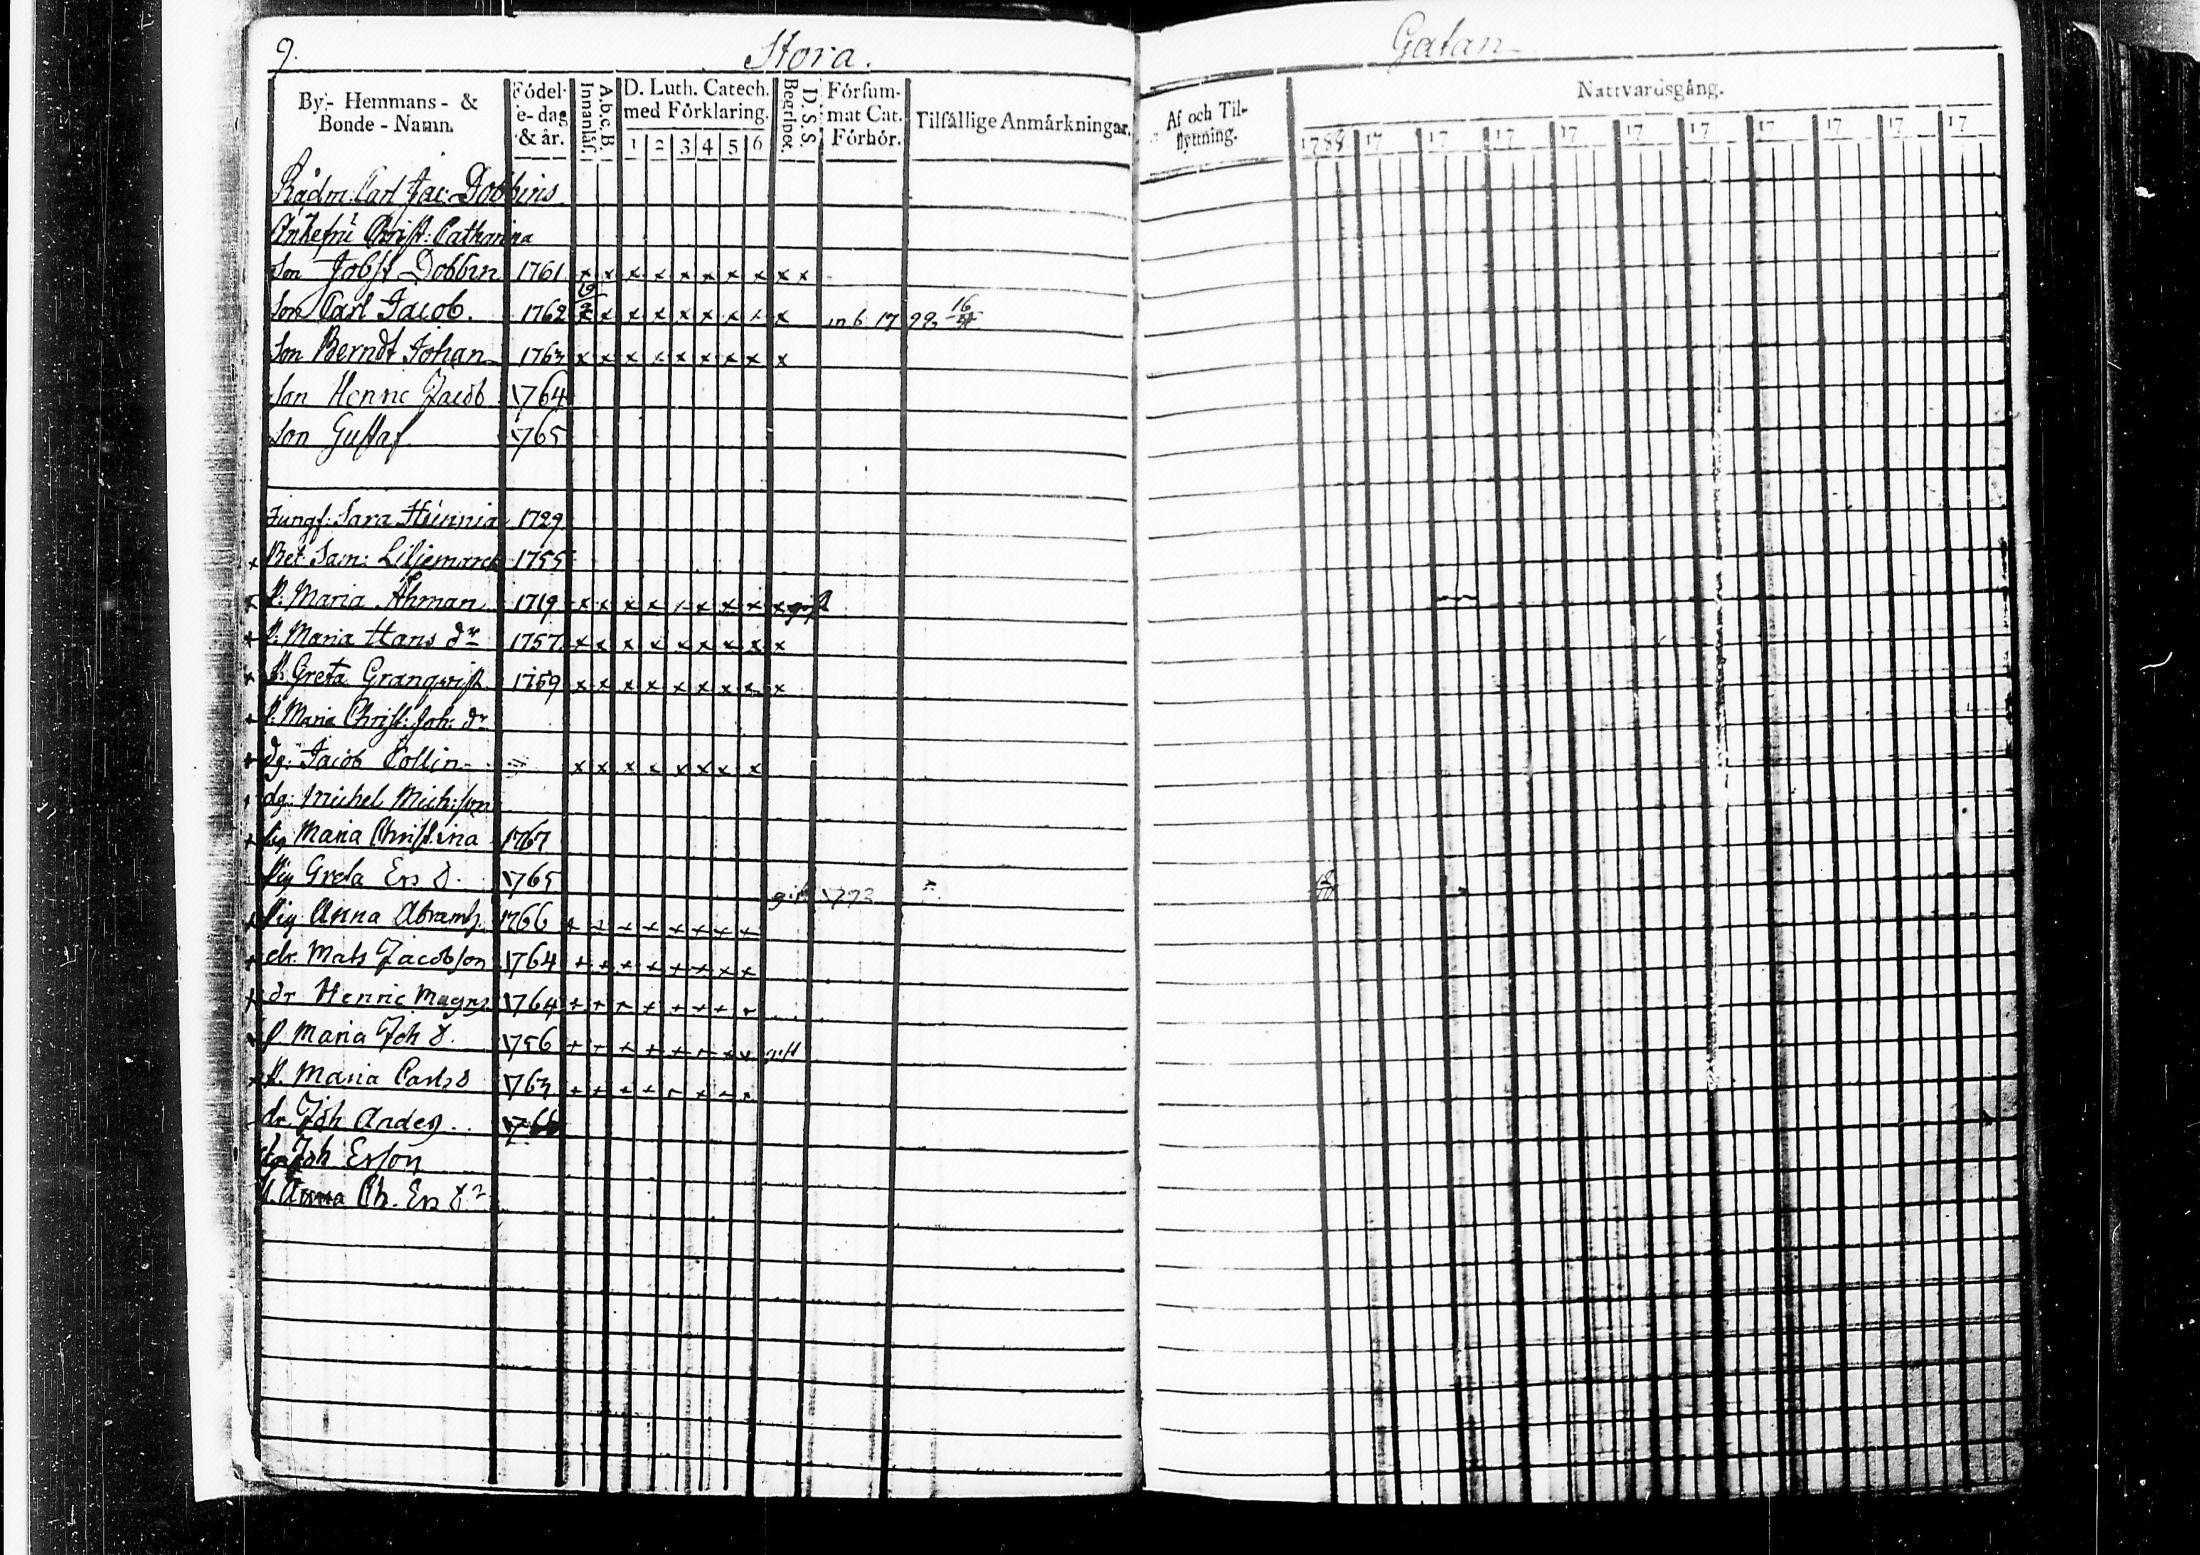 9. Stora. Gatan
By- Hemmans- & Bonde-Namn. Födel-e-dag & år. Innanläs. A.b.c.B. D. Luth. Catech. med Förklaring. 1 2 3 4 5 6 Begripet. D.S.S. Försum-mat Cat. Förhör. Tilfällige Anmärkningar. Af och Til-flyttning. Nattvardsgång.
1788 17 17 17 17 17 17 17 17 17 17
Rådm: Carl Jac: Dobbins
Enkefru Christ: Catharina
Son Jobst Dobbin 1761 x x x x x x x x x x
Son Carl Jacob. 1762 x x x x x x x x x
Son Berndt Johan 1763 x x x x x x x x x
Son Henric Jacob 1764
Son Gustaf 1765
Jungf: Sara 1729
Bet: Sam: Liljemarck 1755
P. Maria Åhman 1719 x x x x x x x x x gift
P. Maria Hans dr 1757 x x x x x x x x x
P. Greta Granqvist 1759 x x x x x x x x x
P. Maria Christ: Joh: dr
dg: Jacob Collin x x x x x x x x
dg: Michel Mich:son
pig Maria Christina 1767
Pig Greta Ers D. 1765 gift 1793
Pig Anna Abramsd. 1766 x x x x x x x x
dr. Mats Jacobson 1764 x x x x x x x x
dr Henric Magns 1764 x x x x x x x x
P. Maria Joh D. 1756 x x x x x x x x gift
P. Maria Carls D 1763 x x x x x x x x
dr. Joh Anders
Joh Erson
P. Anna Ch. Ers Dr